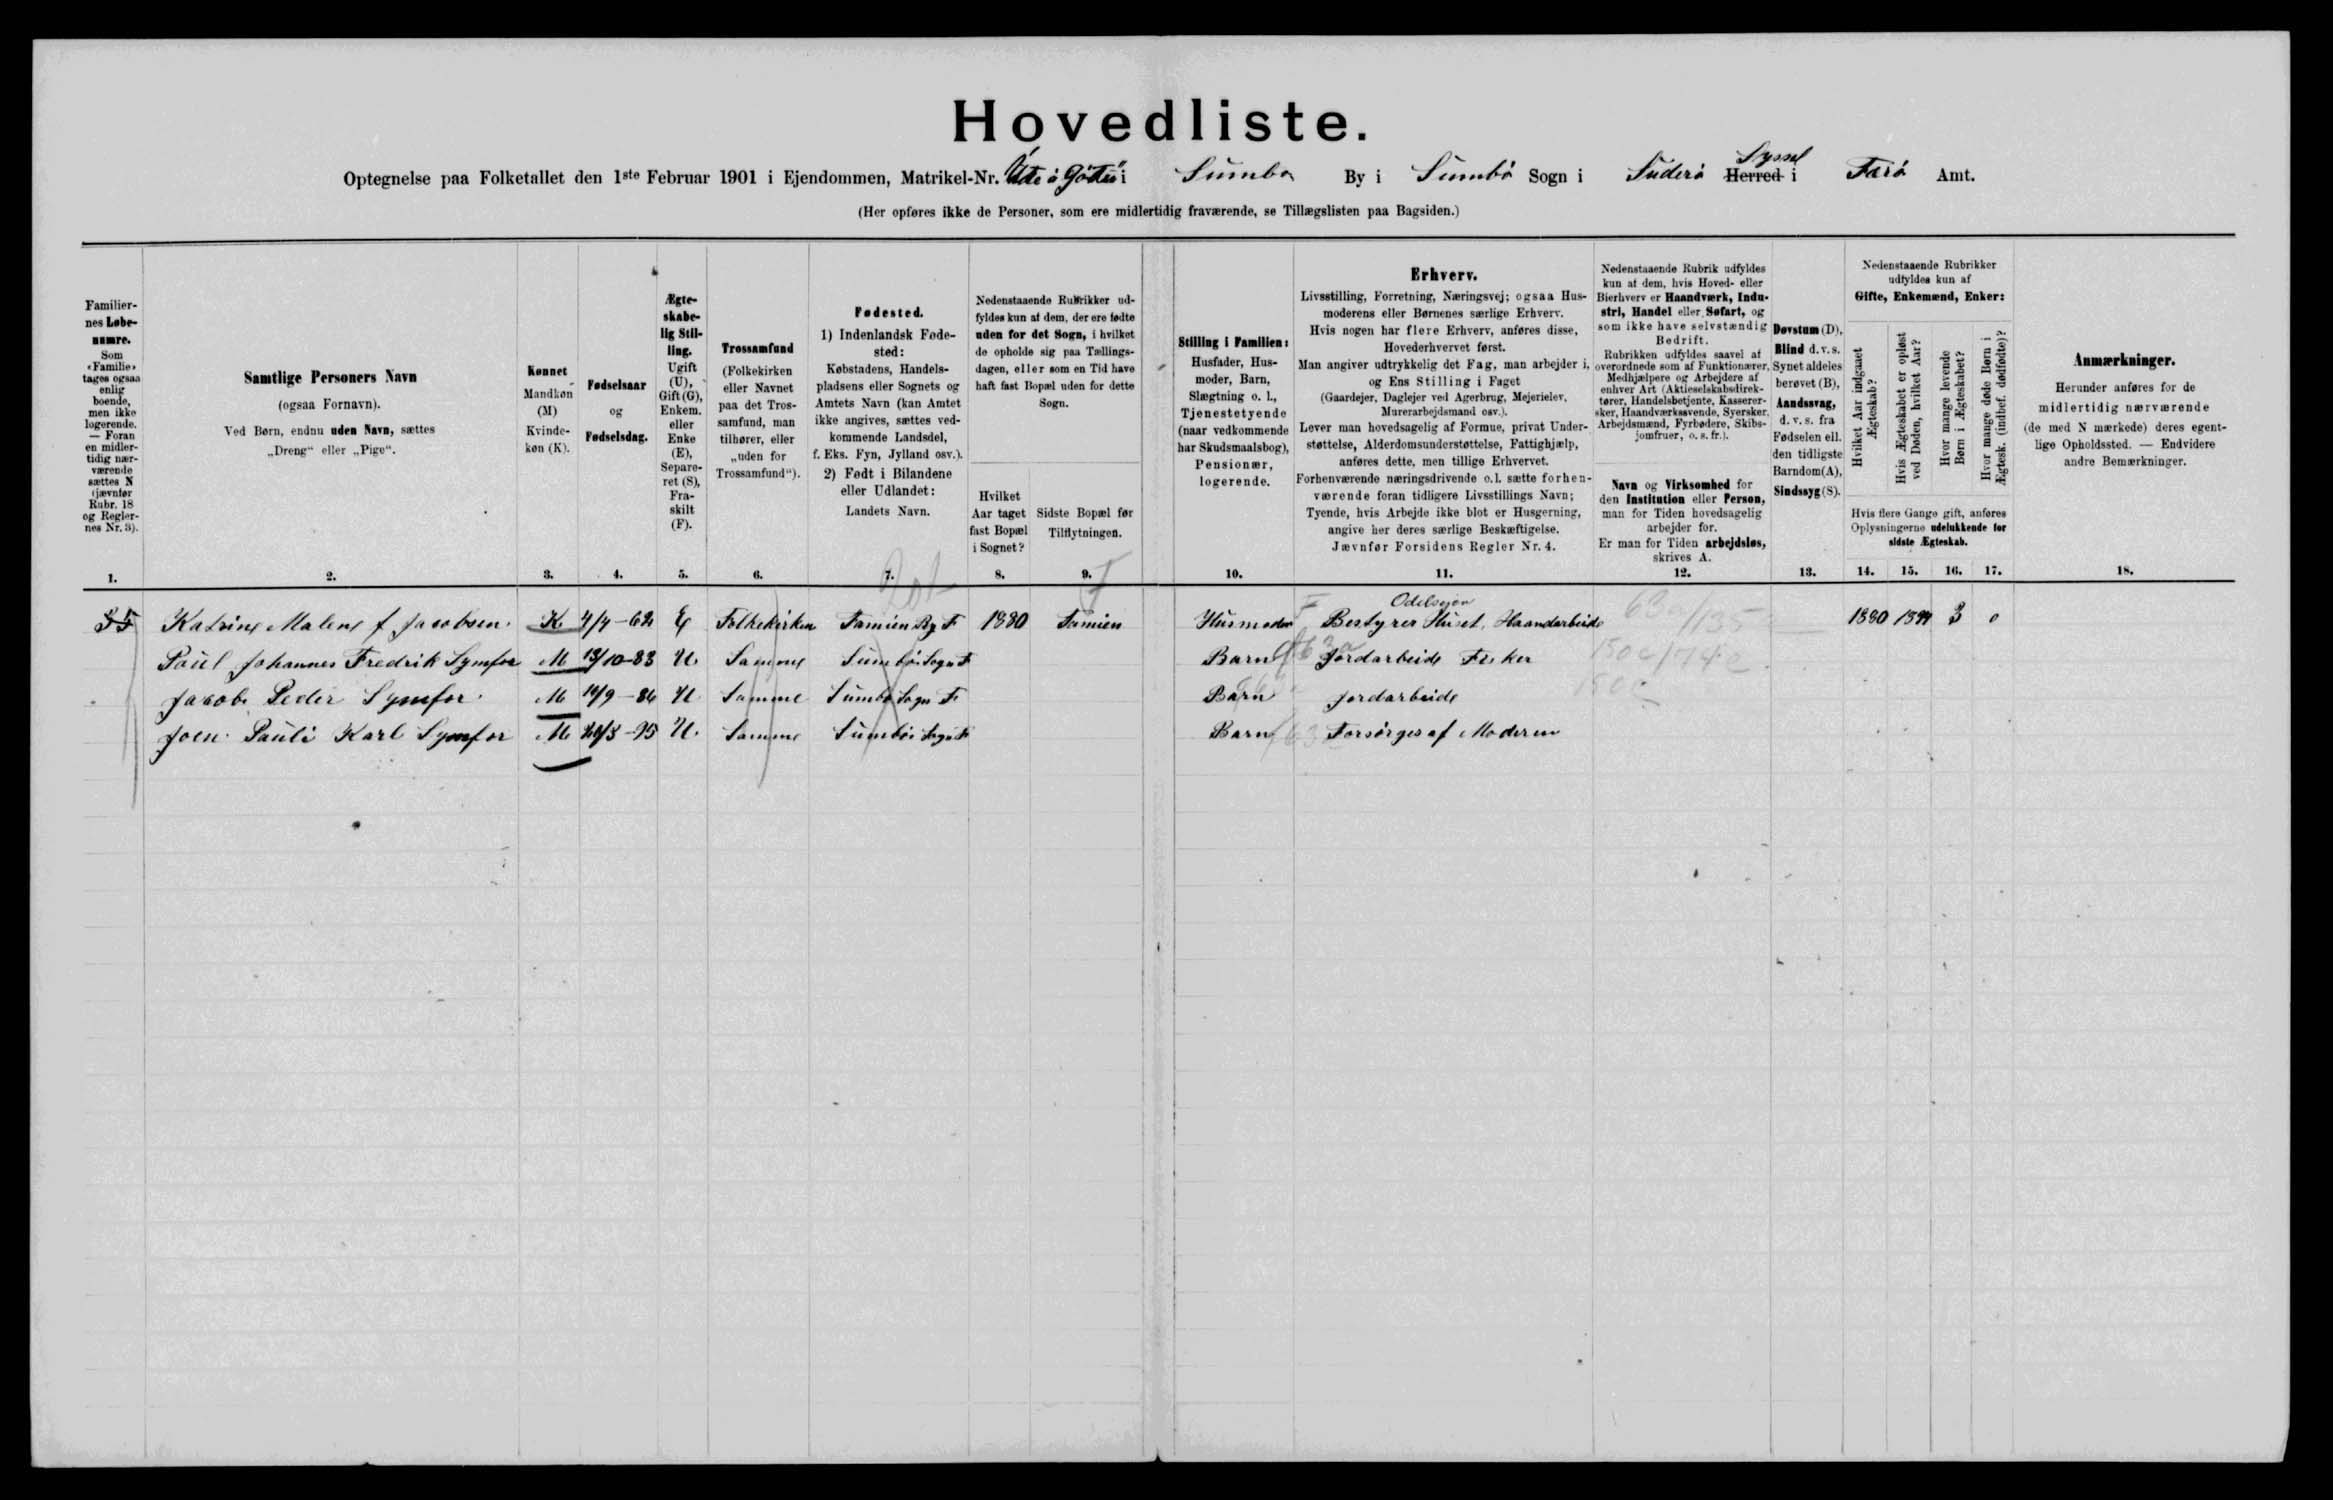 Hovedliste.
Optegnelse paa Folketallet den 1ste Februar 1901 i Ejendommen, Matrikel-Nr. Úte i Göt i Sumbø By i Sumbø Sogn i Suderø Syssel Herred i Færø Amt.
(Her opføres ikke de Personer, som ere midlertidig fraværende, se Tillægslisten paa Bagsiden.)
Familier-
nes Løbe-
numre.
Som
«Familie»
tages ogsaa
enlig
boende,
men ikke
logerende.
— Foran
en midler-
tidig nær-
værende
sættes N
(jævnfør
Rubr. 18
og Regler-
nes Nr. 3).
1.
Samtlige Personers Navn
(ogsaa Fornavn).
Ved Børn, endnu uden Navn, sættes
„Dreng“ eller „Pige“.
2.
Kønnet
Mandkøn
(M)
Kvinde-
køn (K).
3.
Fødselsaar
og
Fødselsdag.
4.
Ægte-
skabe-
lig Stil-
ling.
Ugift
(U),
Gift (G),
Enkem.
eller
Enke
(E),
Separe-
ret (S),
Fra-
skilt
(F).
5.
Trossamfund
(Folkekirken
eller Navnet
paa det Tros-
samfund, man
tilhører, eller
„uden for
Trossamfund“).
6.
Fødested.
1) Indenlandsk Føde-
sted:
Købstadens, Handels-
pladsens eller Sognets og
Amtets Navn (kan Amtet
ikke angives, sættes ved-
kommende Landsdel,
f. Eks. Fyn, Jylland osv.).
2) Født i Bilandene
eller Udlandet:
Landets Navn.
7.
Nedenstaaende Rubrikker ud-
fyldes kun af dem, der ere fødte
uden for det Sogn, i hvilket
de opholde sig paa Tællings-
dagen, eller som en Tid have
haft fast Bopæl uden for dette
Sogn.
Hvilket
Aar taget
fast Bopæl
i Sognet?
8.
Sidste Bopæl før
Tilflytningen.
9.
Stilling i Familien:
Husfader, Hus-
moder, Barn,
Slægtning o. l.,
Tjenestetyende
(naar vedkommende
har Skudsmaalsbog),
Pensionær,
logerende.
10.
Erhverv.
Livsstilling, Forretning, Næringsvej; ogsaa Hus-
moderens eller Børnenes særlige Erhverv.
Hvis nogen har flere Erhverv, anføres disse,
Hovederhvervet først.
Man angiver udtrykkelig det Fag, man arbejder i,
og Ens Stilling i Faget
(Gaardejer, Daglejer ved Agerbrug, Mejerielev,
Murerarbejdsmand osv.).
Lever man hovedsagelig af Formue, privat Under-
støttelse, Alderdomsunderstøttelse, Fattighjælp,
anføres dette, men tillige Erhvervet.
Forhenværende næringsdrivende o.l. sætte forhen-
værende foran tidligere Livsstillings Navn;
Tyende, hvis Arbejde ikke blot er Husgerning,
angive her deres særlige Beskæftigelse.
Jævnfør Forsidens Regler Nr. 4.
11.
Nedenstaaende Rubrik udfyldes
kun af dem, hvis Hoved- eller
Bierhverv er Haandværk, Indu-
stri, Handel eller Søfart, og
som ikke have selvstændig
Bedrift.
Rubrikken udfyldes saavel af
overordnede som af Funktionærer,
Medhjælpere og Arbejdere af
enhver Art (Aktieselskabsdirek-
tører, Handelsbetjente, Kasserer-
sker, Haandværkssvende, Syersker,
Arbejdsmænd, Fyrbødere, Skibs-
jomfruer, o. s. fr.).
Navn og Virksomhed for
den Institution eller Person,
man for Tiden hovedsagelig
arbejder for.
Er man for Tiden arbejdsløs,
skrives A.
12.
Døvstum (D),
Blind d. v. s.
Synet aldeles
berøvet (B),
Aandssvag,
d. v. s. fra
Fødselen ell.
den tidligste
Barndom (A),
Sindssyg (S).
13.
Nedenstaaende Rubrikker
udfyldes kun af
Gifte, Enkemænd, Enker:
Hvilket Aar indgaaet
Ægteskab?
Hvis Ægteskabet er opløst
ved Døden, hvilket Aar?
Hvor mange levende
Børn i Ægteskabet?
Hvor mange døde Børn i
Ægtesk. (indbef. dødfødte)?
Hvis flere Gange gift, anføres
Oplysningerne udelukkende for
sidste Ægteskab.
14. 15. 16. 17.
Anmærkninger.
Herunder anføres for de
midlertidig nærværende
(de med N mærkede) deres egent-
lige Opholdssted. — Endvidere
andre Bemærkninger.
18.
Odelsejer
Katrine Malene f Jacobsen K 4/4-62 E Folkekirken Famien By F 1880 Famien Husmoder Bestyrer Huset, Haandarbeide 63a/135 1880 1899 3 0
Poul Johannes Fredrik Symfor M 13/10-83 U. Samme Sumbø Sogn F Barn 63a Jordarbeide Fisker 150c/74c
Jacob Peder Symfor M 10/9-86 U Samme Sumbø Sogn F Barn Jordarbeide 150c
Joen Pauli Karl Symfor M 20/3-95 U. Samme Sumbø Sogn F Barn Forsørges af Moderen